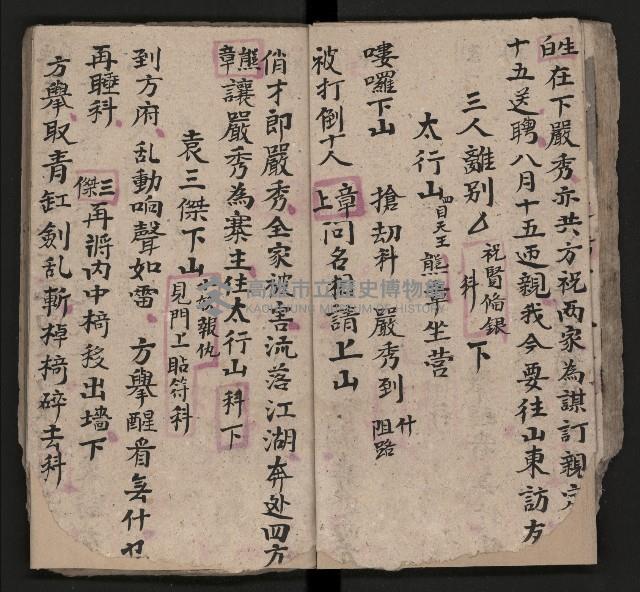 生白 在下嚴秀亦共方祝兩家為謀訂親
十五送聘八月十五迎親我今要往山東訪友
三人離別 科 祝賢偹銀 下
太行山 四目天王 熊章坐营
嘍囉下山 搶刼科 嚴秀到 什 阻路
被打倒十人 章上 问名相請上山
俏才郎嚴秀全家被害流落江湖奔处四方
熊章 讓嚴秀為寨主往太行山科下
袁三傑下山 報仇 見門上貼符科
到方府乱動响聲如雷 方舉醒看無什
再睡科 三傑 再将内中椅移出墻下
方舉取青缸劍乱斬棹椅碎去科
高雄市立歷史博物館
KAOHSIUNG MUSEUM OF HISTORY